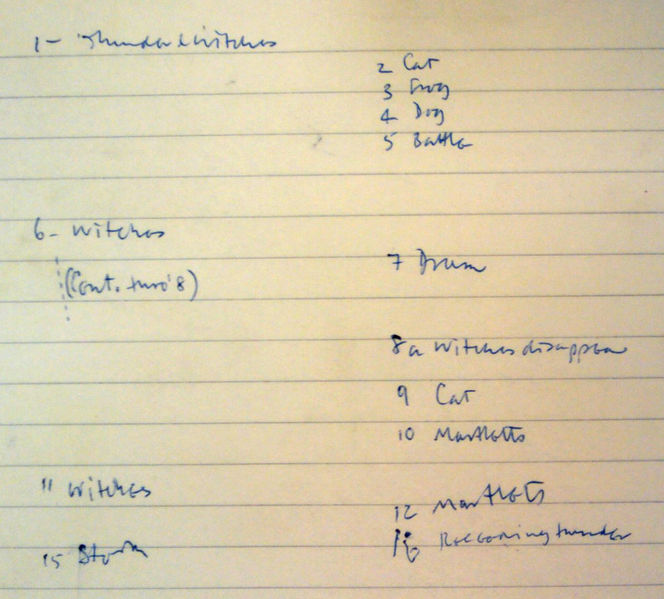 1- Thunder & Witches
2 Cat
3 Frog
4 Dog
5 Battle
6- Witches
7 Drum
(Cont. thro' 8)
8a Witches disappear
9 Cat
10 Martletts
11 Witches
12 Martlets
15 Storm
Reccoming thunder